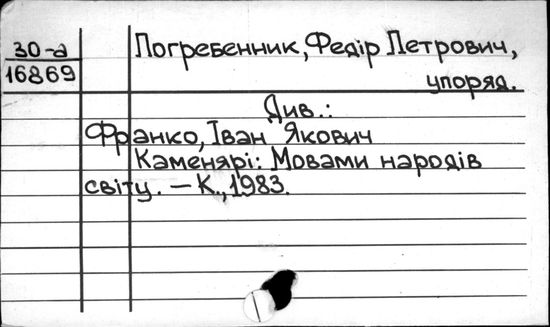 30-а
16869
Погребенник, Федір Петрович,
упоряд.
Див.:
Франко, Іван Якович
Каменярі: Мовами народів
світу. — К., 1983.